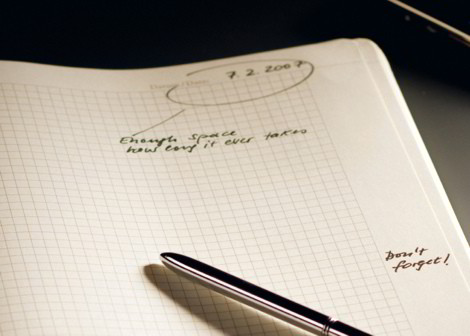 7.2 2007
Enough space
how long it ever takes
Don't
forget!